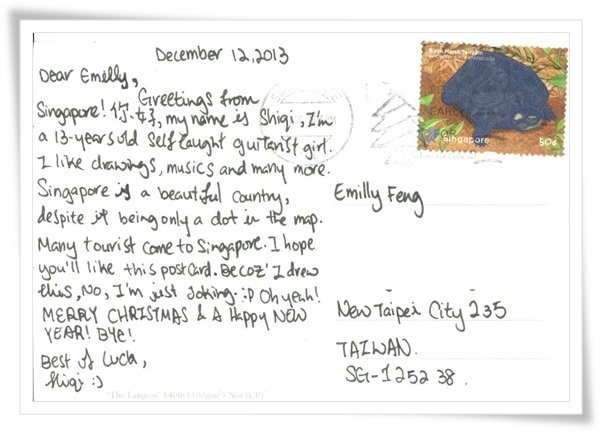 December 12, 2013
Dear Emelly,
Greetings from
Singapore! 你好, my name is Shiqi, I'm
a 13-years old self taught guitarist girl.
I like drawings, musics and many more.
Singapore is a beautiful country,
despite it being only a dot in the map.
Many tourist come to Singapore. I hope
you'll like this postcard. Becoz' I drew
this, No, I'm just joking. :P Oh yeah!
MERRY CHRISTMAS & A Happy NEW
YEAR! BYE!
Best of Luck,
Shiqi :)
Black Marsh Terrapin
singapore
50¢
Emilly Feng
New Taipei City 235
TAIWAN.
SG-125238.
'The Langton' 140lb (300gsm) Not (CP)